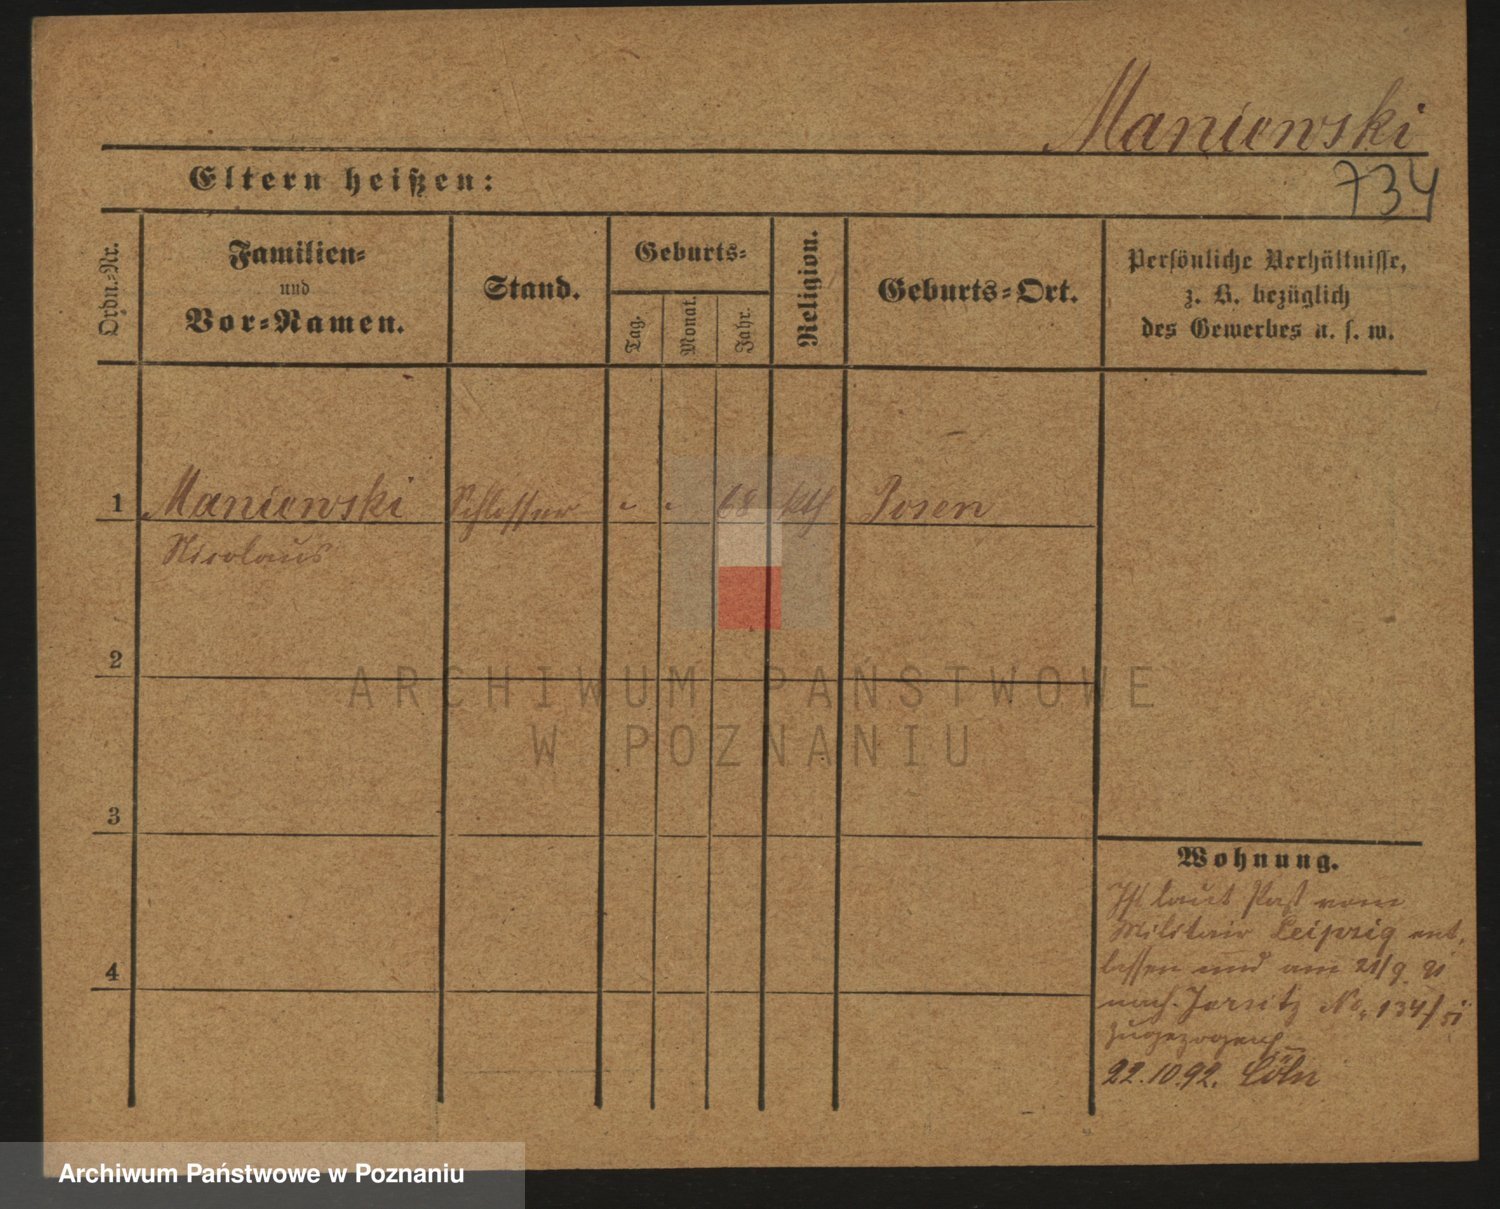 Maniewski
734
Eltern heißen:
Ordn.-Nr.
Familien-
und
Vor-Namen.
Stand.
Geburts-
Tag.
Monat.
Jahr.
Religion.
Geburts-Ort.
Persönliche Verhältnisse,
z. B. bezüglich
des Gewerbes u. s. w.
1 Maniewski Schlosser " " 68 kth Posen
Nicolaus
2
3
4
Wohnung.
Ist laut Paß vom
Militair Leipzig ent-
lassen und am 21/9 91
nach Jersitz No. 134/
zugezogen
22.10.92. Cöln
ARCHIWUM PAŃSTWOWE
W POZNANIU
Archiwum Państwowe w Poznaniu